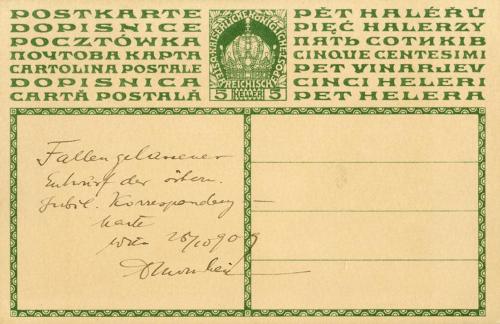 POSTKARTE
DOPISNICE
POCZTÓWKA
ПОЧТОВА КАРТА
CARTOLINA POSTALE
DOPISNICA
CARTĂ POSTALĂ
5 HELLER 5
PĚT HALÉŘŮ
PIĘĆ HALERZY
ПЯТЬ СОТИКІВ
CINQUE CENTESIMI
PET VINARJEV
CINCI HELERI
PET HELERA
Fallengelassener
Entwurf der österr.
Jubil. Korrespondenz-
karte
Wien